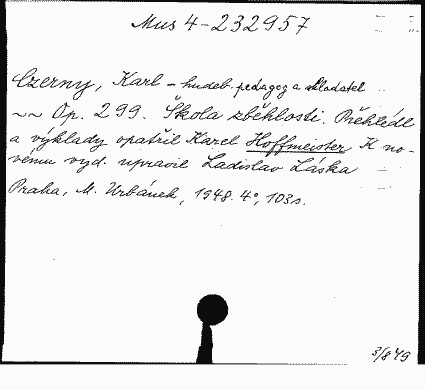 Mus 4-232957
Czerny, Karl - hudeb. pedagog a skladatel
~~ Op. 299. Škola zběhlosti. Přehlédl
a výklady opatřil Karel Hoffmeister K no-
vému vyd. upravil Ladislav Láska
Praha, M. Urbánek, 1948. 4°, 103 s.
3/8 49